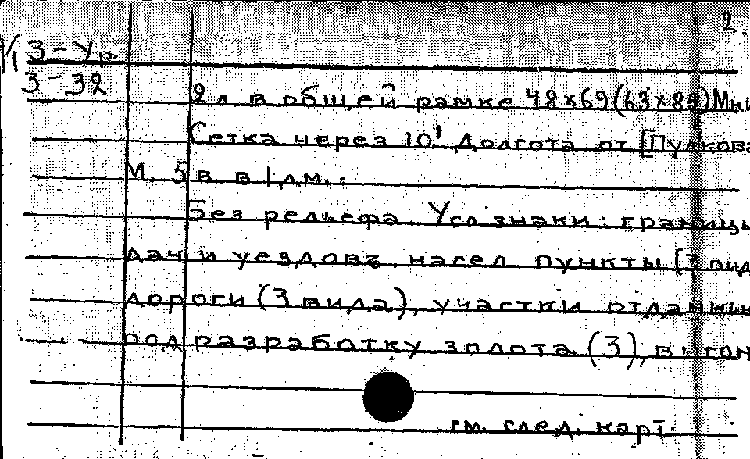 2.
З-Ур
3-32
2 л в общей рамке 48×69 (63×84)
Сетка через 10' Долгота от [Пулкова
М. 5 в в 1 дм.:
Без рельефа Усл знаки: границы
дач и уездовъ насел пункты
дороги (3 вида), участки отданные
под разработку золота (3), выгон
см. след. карт.